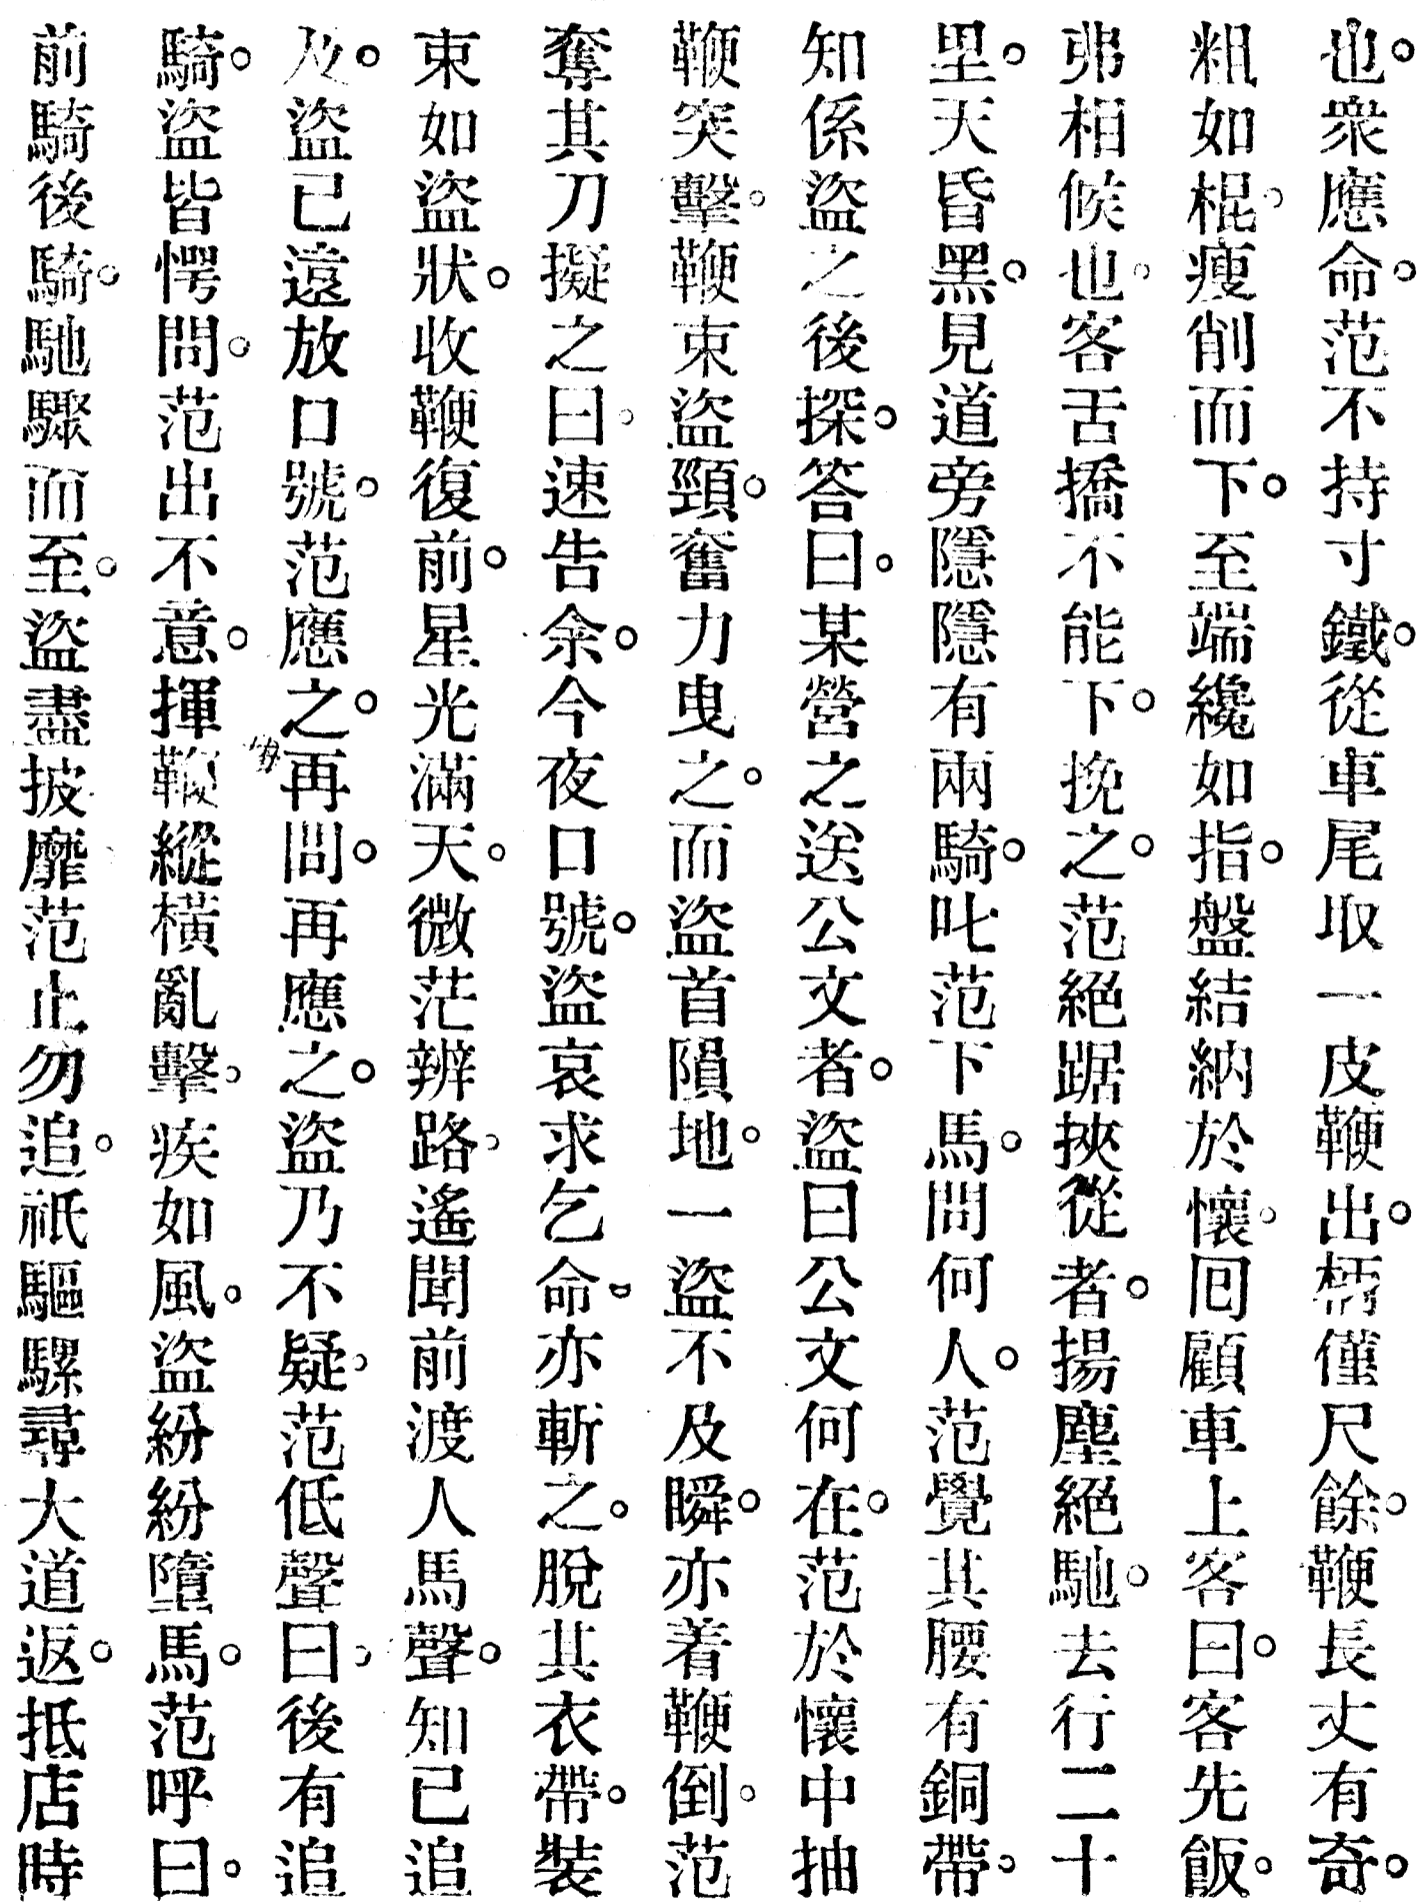 也。衆應命。范不持寸鐵。從車尾取一皮鞭出。柄僅尺餘。鞭長丈有奇。
粗如棍。瘦削而下。至端纔如指。盤結納於懷。囘顧車上客曰。客先飯。
弗相候也。客舌撟不能下。挽之。范絕踞挾從者。揚塵絕馳。去行二十
里。天昏黑。見道旁隱隱有兩騎。叱范下馬。問何人。范覺其腰有銅帶。
知係盜之後探。答曰。某營之送公文者。盜曰公文何在。范於懷中抽
鞭突擊。鞭束盜頸。奮力曳之。而盜首隕地。一盜不及瞬。亦着鞭倒。范
奪其刀擬之曰。速告余。今夜口號。盜哀求乞命。亦斬之。脫其衣帶。裝
束如盜狀。收鞭復前。星光滿天。微茫辨路。遙聞前渡人馬聲。知已追
及。盜已遠放口號。范應之。再問。再應之。盜乃不疑。范低聲曰。後有追
騎。盜皆愕問。范出不意。揮鞭縱橫亂擊。疾如風。盜紛紛墮馬。范呼曰。
前騎後騎。馳驟而至。盜盡披靡。范止勿追。祇驅騾尋大道返。抵店時